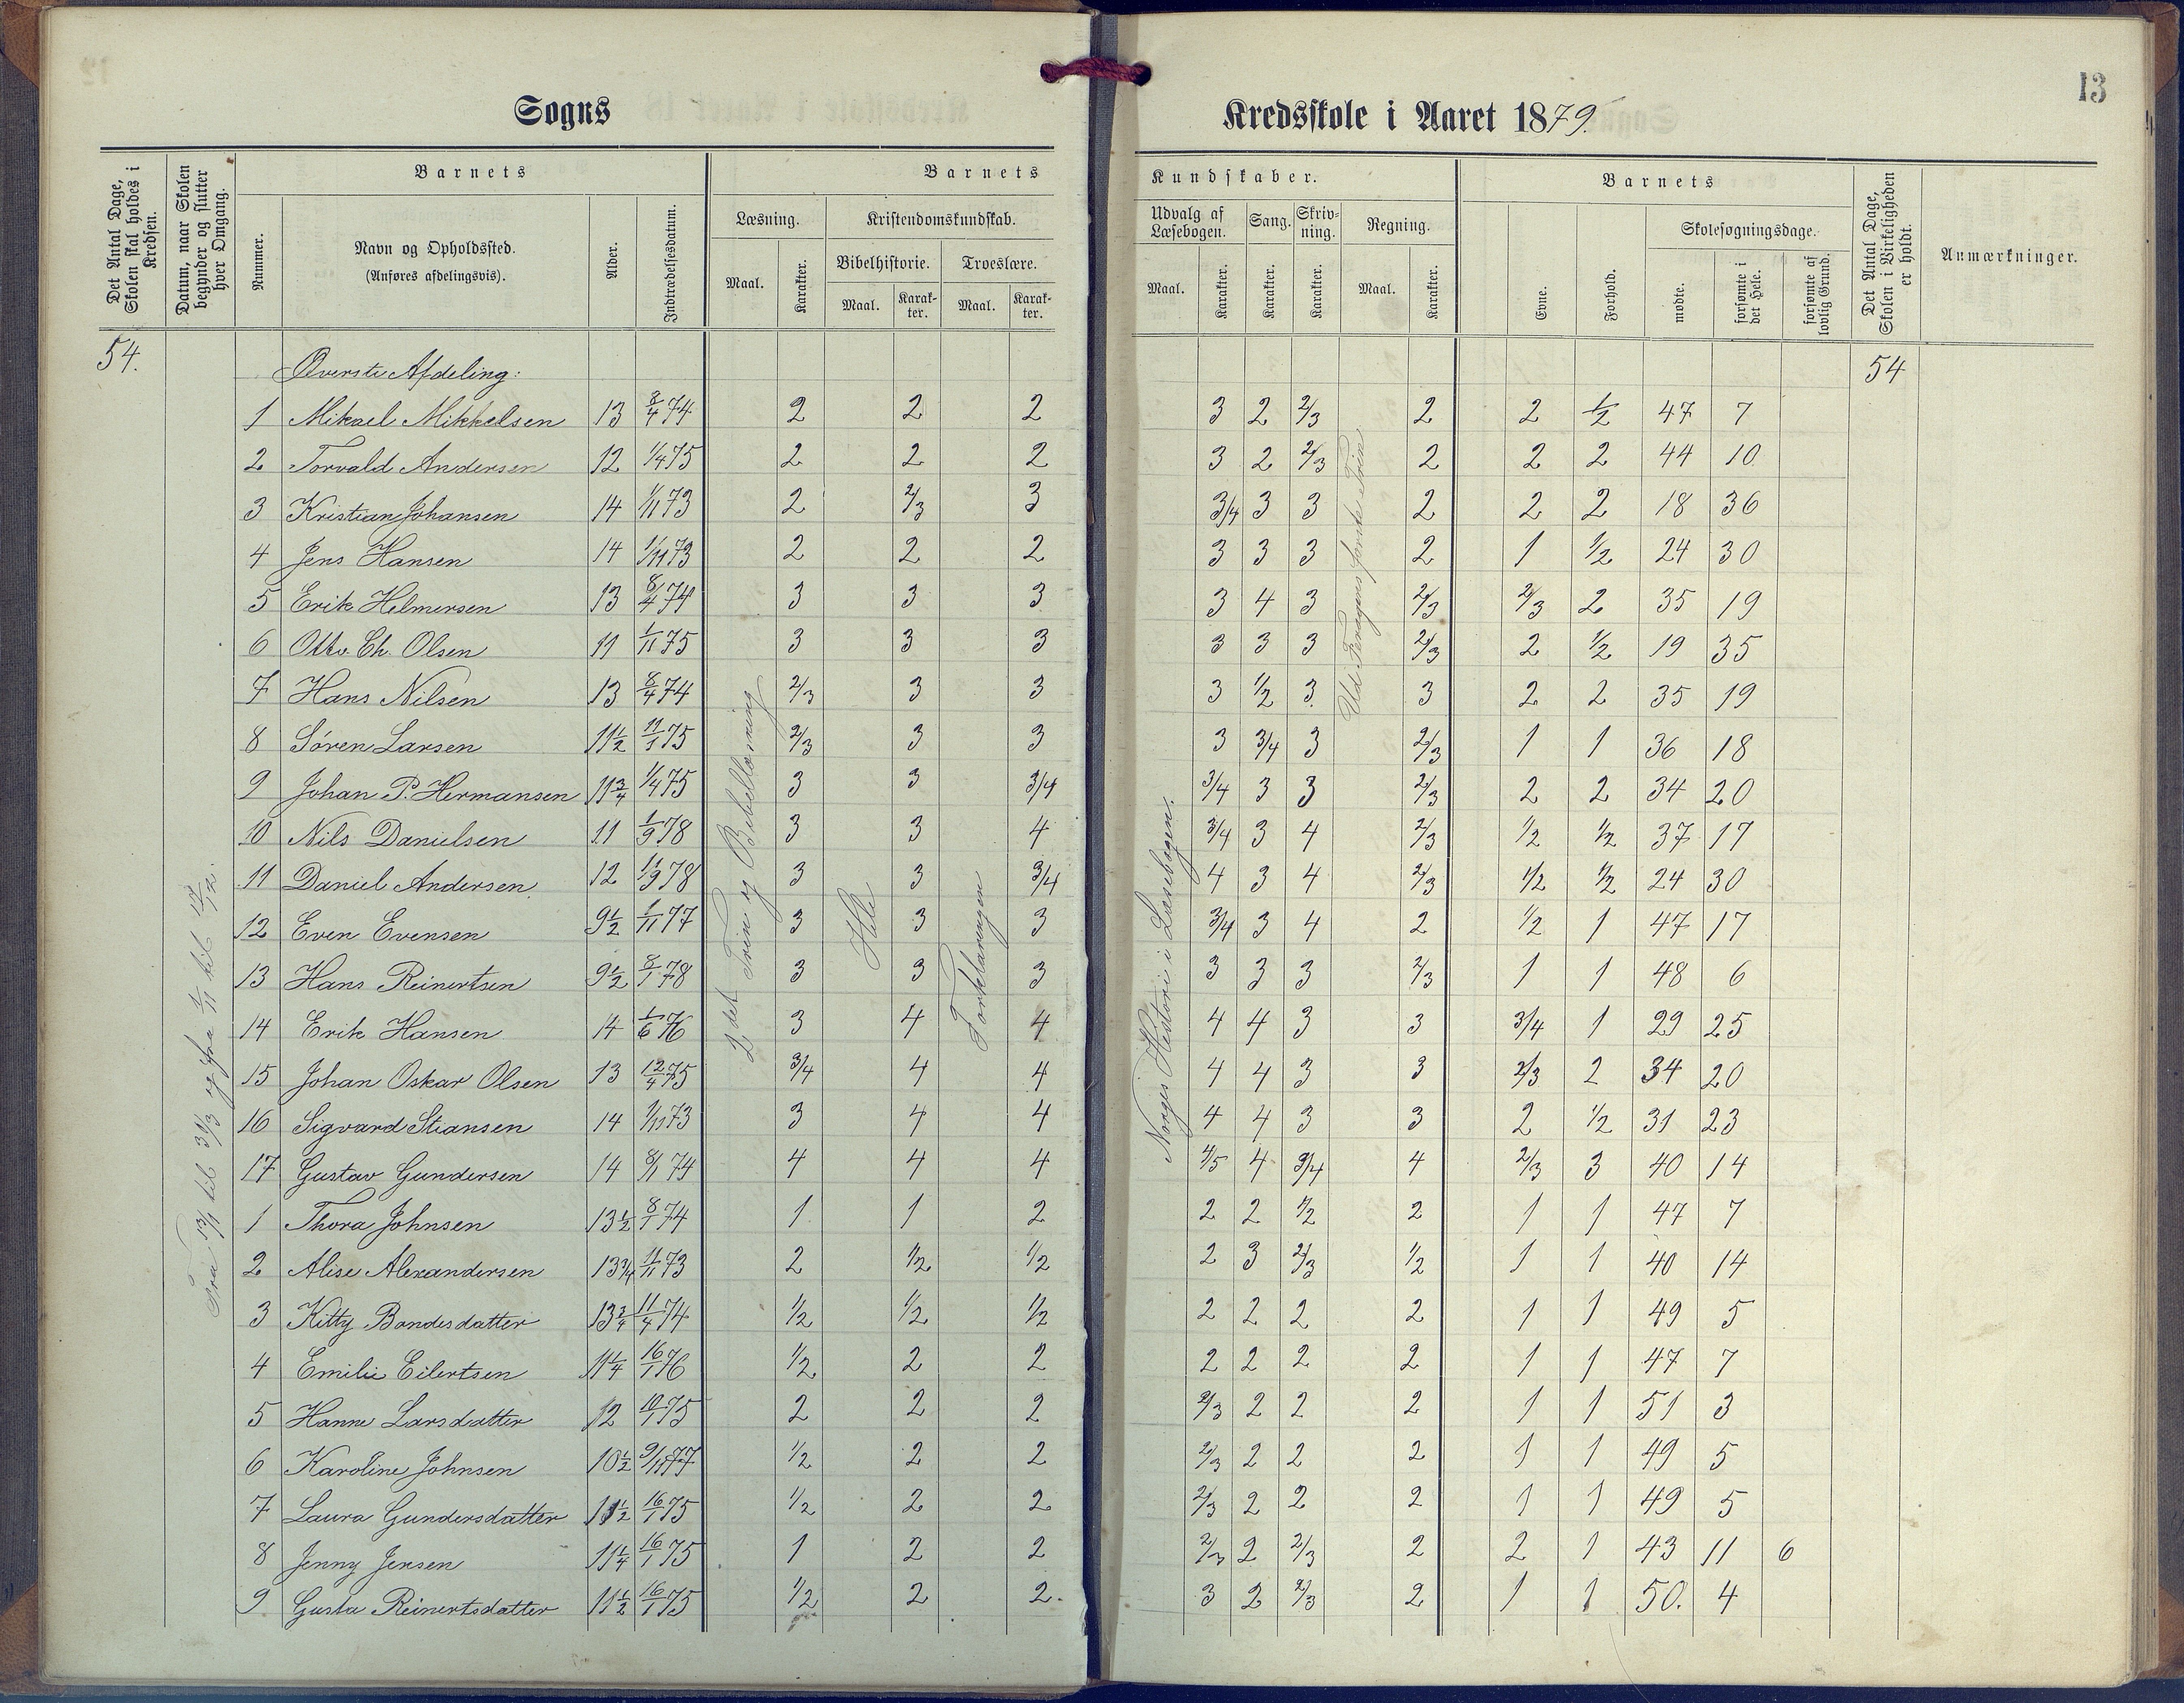 13
Sogns Kredsskole i Aaret 1879.
Det Antal Dage, Skolen skal holdes i Kredsen.
Datum, naar Skolen begynder og slutter hver Omgang.
Barnets
Nummer.
Navn og Opholdssted.
(Anføres afdelingsvis).
Alder.
Indtrædelsesdatum.
Barnets Kundskaber.
Læsning.
Maal. Karakter.
Kristendomskundskab.
Bibelhistorie. Troeslære.
Maal. Karakter. Maal. Karakter.
Udvalg af Læsebogen.
Maal. Karakter.
Sang.
Karakter.
Skrivning.
Karakter.
Regning.
Maal. Karakter.
Barnets
Evne.
Forhold.
Skolesøgningsdage.
mødte.
forsømte i det Hele.
forsømte af lovlig Grund.
Det Antal Dage, Skolen i Virkeligheden er holdt.
Anmærkninger.
54. Øverste Afdeling: 54
1 Mikael Mikkelsen 13 8/4 74 2 2 2 3 2 2/3 2 2 1/2 47 7
2 Torvald Andersen 12 1/4 75 2 2 2 3 2 2/3 2 2 2 44 10
3 Kristian Johansen 14 1/11 73 2 2/3 3 3/4 3 3 2 2 2 18 36
4 Jens Hansen 14 1/11 73 2 2 2 3 3 3 2 1 1/2 24 30
5 Erik Helmersen 13 8/4 74 3 3 3 3 4 3 2/3 2/3 2 35 19
6 Otto Ch. Olsen 11 1/11 75 3 3 3 3 3 3 2/3 2 1/2 19 35
7 Hans Nilsen 13 8/4 74 2/3 3 3 3 1/2 3 3 2 2 35 19
8 Sören Larsen 11 1/2 11/1 75 2/3 3 3 3 3/4 3 2/3 1 1 36 18
9 Johan P. Hermansen 11 3/4 1/4 75 3 3 3/4 3/4 3 3 2/3 2 2 34 20
10 Nils Danielsen 11 1/9 78 3 3 4 3/4 3 4 2/3 1/2 1/2 37 17
11 Daniel Andersen 12 11/9 78 3 3 3/4 4 3 4 2/3 1/2 1/2 24 30
12 Even Evensen 9 1/2 1/11 77 3 3 3 3/4 3 4 2 1/2 1 47 17
13 Hans Reinertsen 9 1/2 8/1 78 3 3 3 3 3 3 2/3 1 1 48 6
14 Erik Hansen 14 1/6 76 3 4 4 4 4 3 3 3/4 1 29 25
15 Johan Oskar Olsen 13 12/4 75 3/4 4 4 4 4 3 3 2/3 2 34 20
16 Sigvard Stiansen 14 1/11 73 3 4 4 4 4 3 3 2 1/2 31 23
17 Gustav Gundersen 14 8/1 74 4 4 4 4/5 4 3/4 4 2/3 3 40 14
1 Thora Johnsen 13 1/2 8/1 74 1 1 2 2 2 1/2 2 1 1 47 7
2 Alise Alexandersen 13 3/4 11/11 73 2 1/2 1/2 2 3 2/3 1/2 1 1 40 14
3 Kitty Bondesdatter 13 3/4 11/4 74 1/2 1/2 1/2 2 2 2 2 1 1 49 5
4 Emilie Eilertsen 11 1/4 16/1 76 1/2 2 2 2 2 2 2 1 1 47 7
5 Hanne Larsdatter 12 10/1 75 2 2 2 2/3 2 2 2 1 1 51 3
6 Karoline Johnsen 10 1/2 9/11 77 1/2 2 2 2/3 2 2 2 1 1 49 5
7 Laura Gundersdatter 11 1/2 16/1 75 1/2 2 2 2/3 2 2 2 1 1 49 5
8 Jenny Jensen 11 1/4 16/1 75 1 2 2 2/3 2 2/3 2 2 1 43 11 6
9 Gusta Reinertsdatter 11 1/2 16/1 75 1/2 2 2. 3 2 2/3 2 1 1 50. 4
Fra 13/1 til 31/3 og fra 1/11 til 12/12.
2det Trin og Bibellæsning
Hele
Forklaringen
Norges Historie i Læsebogen.
Ud Første Trin